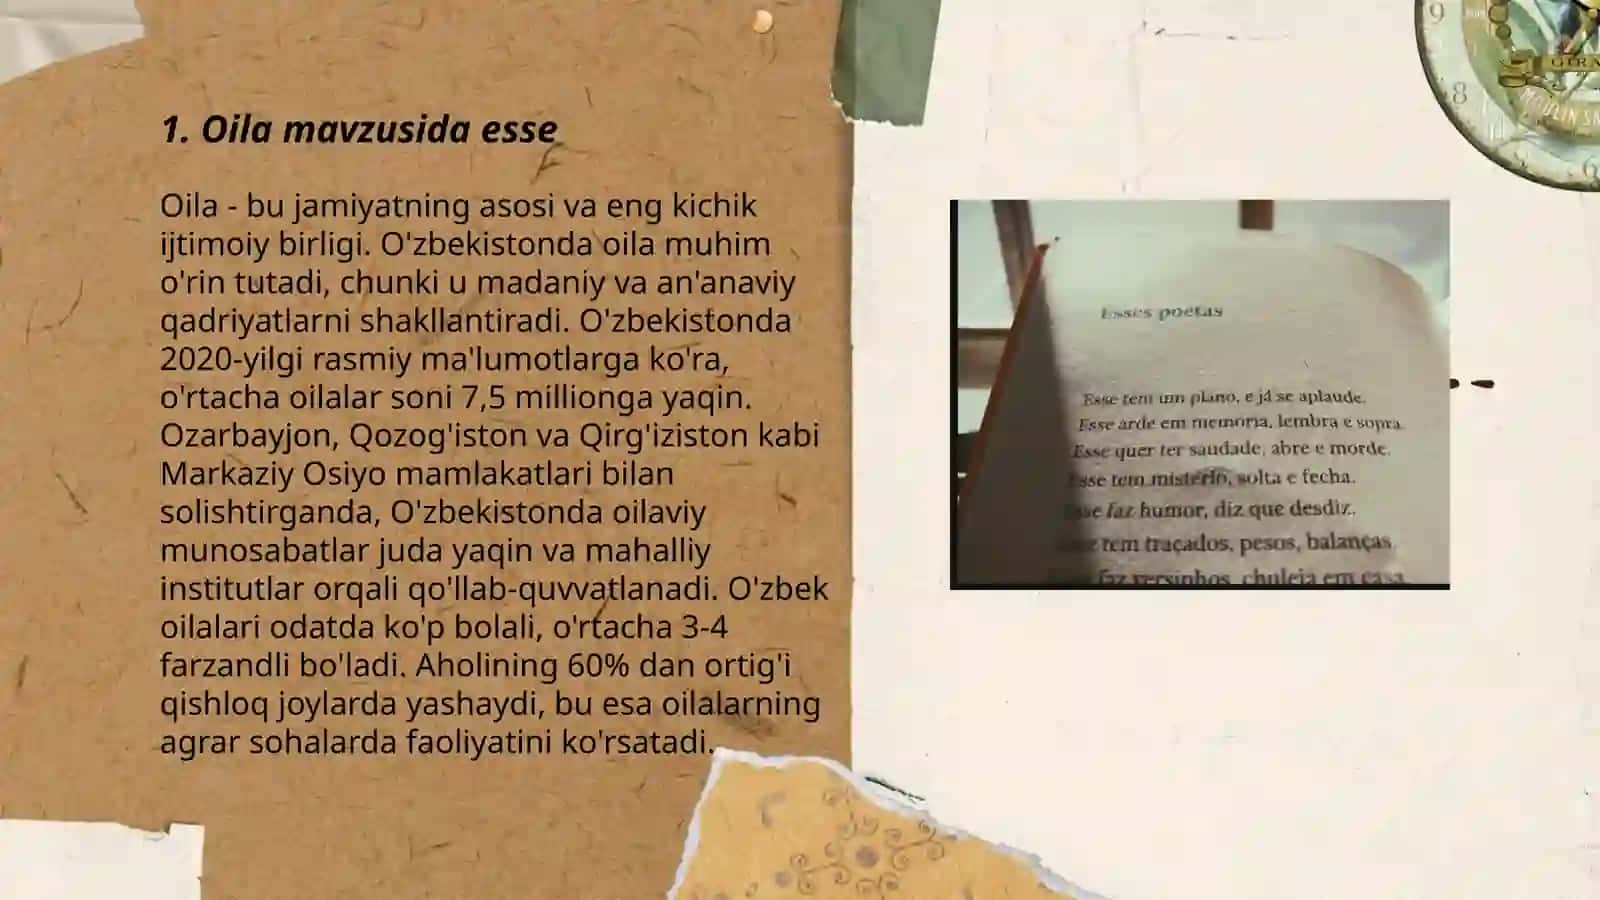 1. Oila mavzusida esse
Oila - bu jamiyatning asosi va eng kichik
ijtimoiy birligi. O'zbekistonda oila muhim
o'rin tutadi, chunki u madaniy va an'anaviy
qadriyatlarni shakllantiradi. O'zbekistonda
2020-yilgi rasmiy ma'lumotlarga ko'ra,
o'rtacha oilalar soni 7,5 millionga yaqin.
Ozarbayjon, Qozog'iston va Qirg'iziston kabi
Markaziy Osiyo mamlakatlari bilan
solishtirganda, O'zbekistonda oilaviy
munosabatlar juda yaqin va mahalliy
institutlar orqali qo'llab-quvvatlanadi. O'zbek
oilalari odatda ko'p bolali, o'rtacha 3-4
farzandli bo'ladi. Aholining 60% dan ortig'i
qishloq joylarda yashaydi, bu esa oilalarning
agrar sohalarda faoliyatini ko'rsatadi.
Esses poetas
Esse tem um plano, e já se aplaude.
Esse arde em memória, lembra e sopra.
Esse quer ter saudade, abre e morde.
Esse tem mistério, solta e fecha.
faz humor, diz que desdiz.
tem traçados, pesos, balanças.
faz versinhos, chuleia em casa
9
8
6
MOULIN